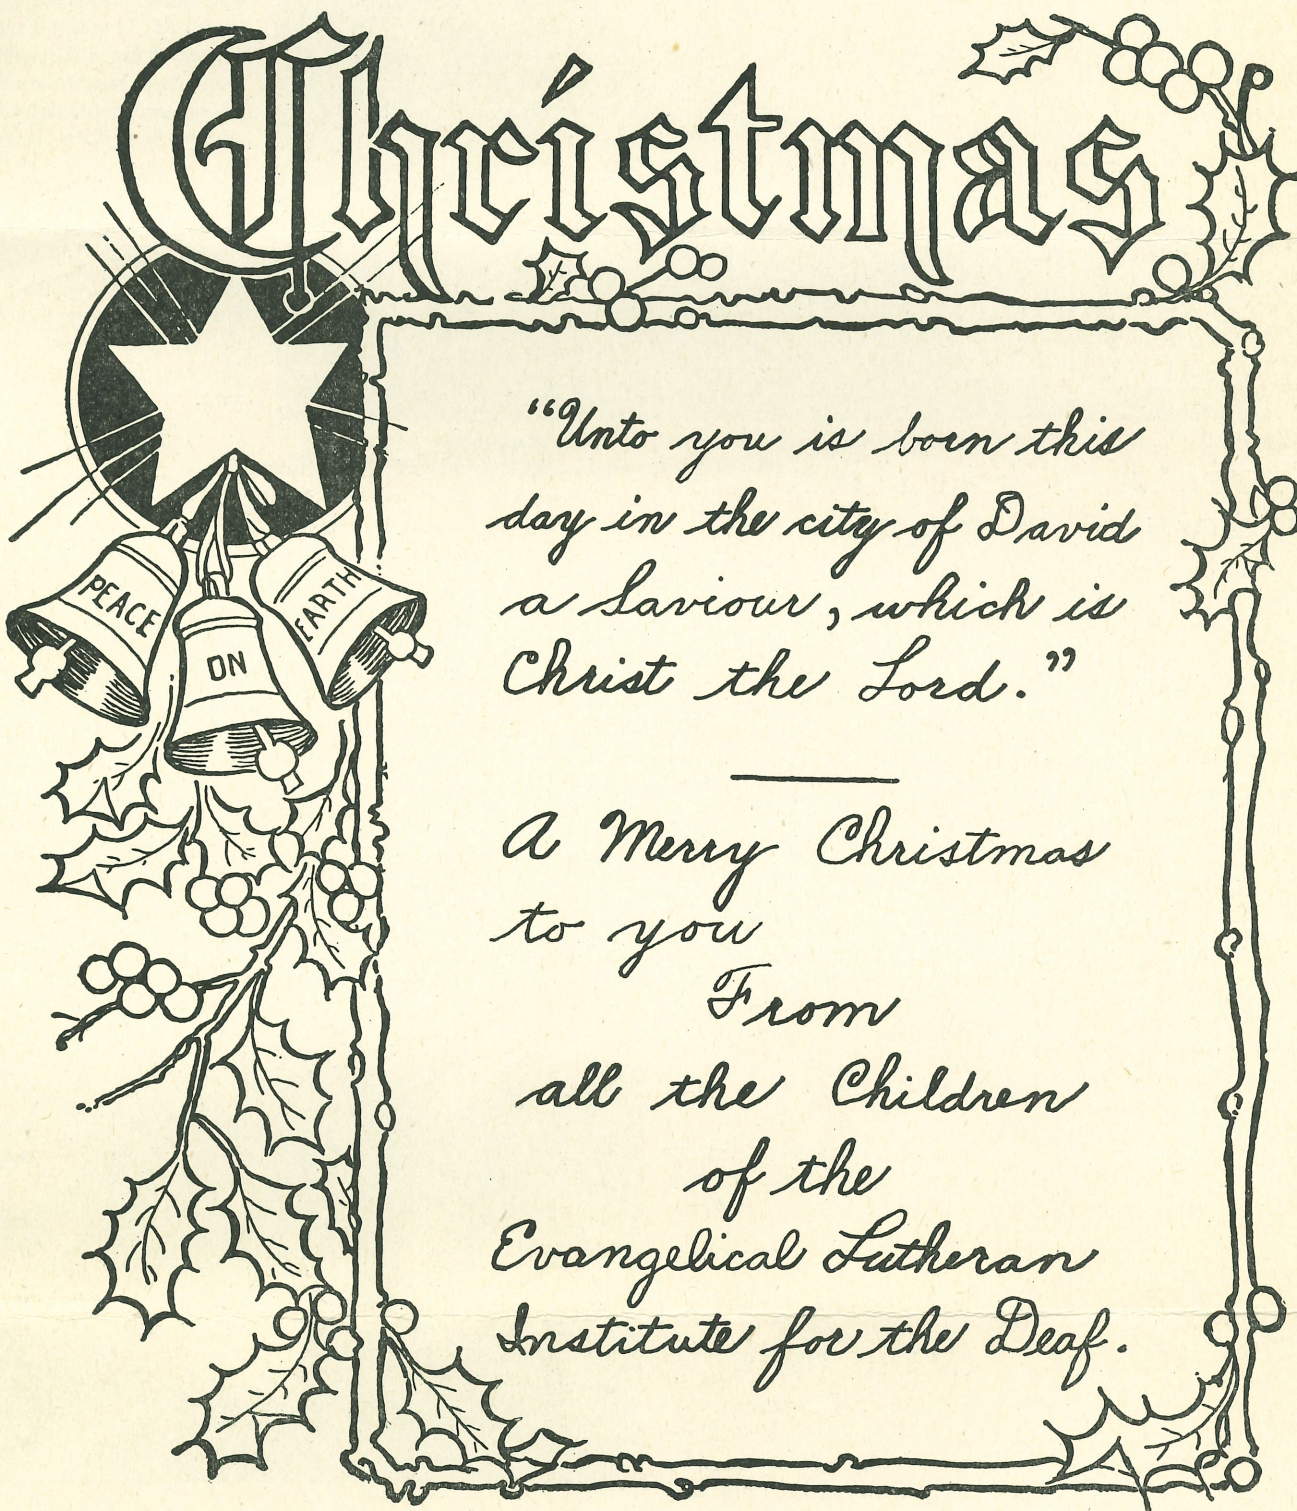 Christmas
PEACE
ON
EARTH
“Unto you is born this
day in the city of David
a Saviour, which is
Christ the Lord.”
A Merry Christmas
to you
From
all the Children
of the
Evangelical Lutheran
Institute for the Deaf.